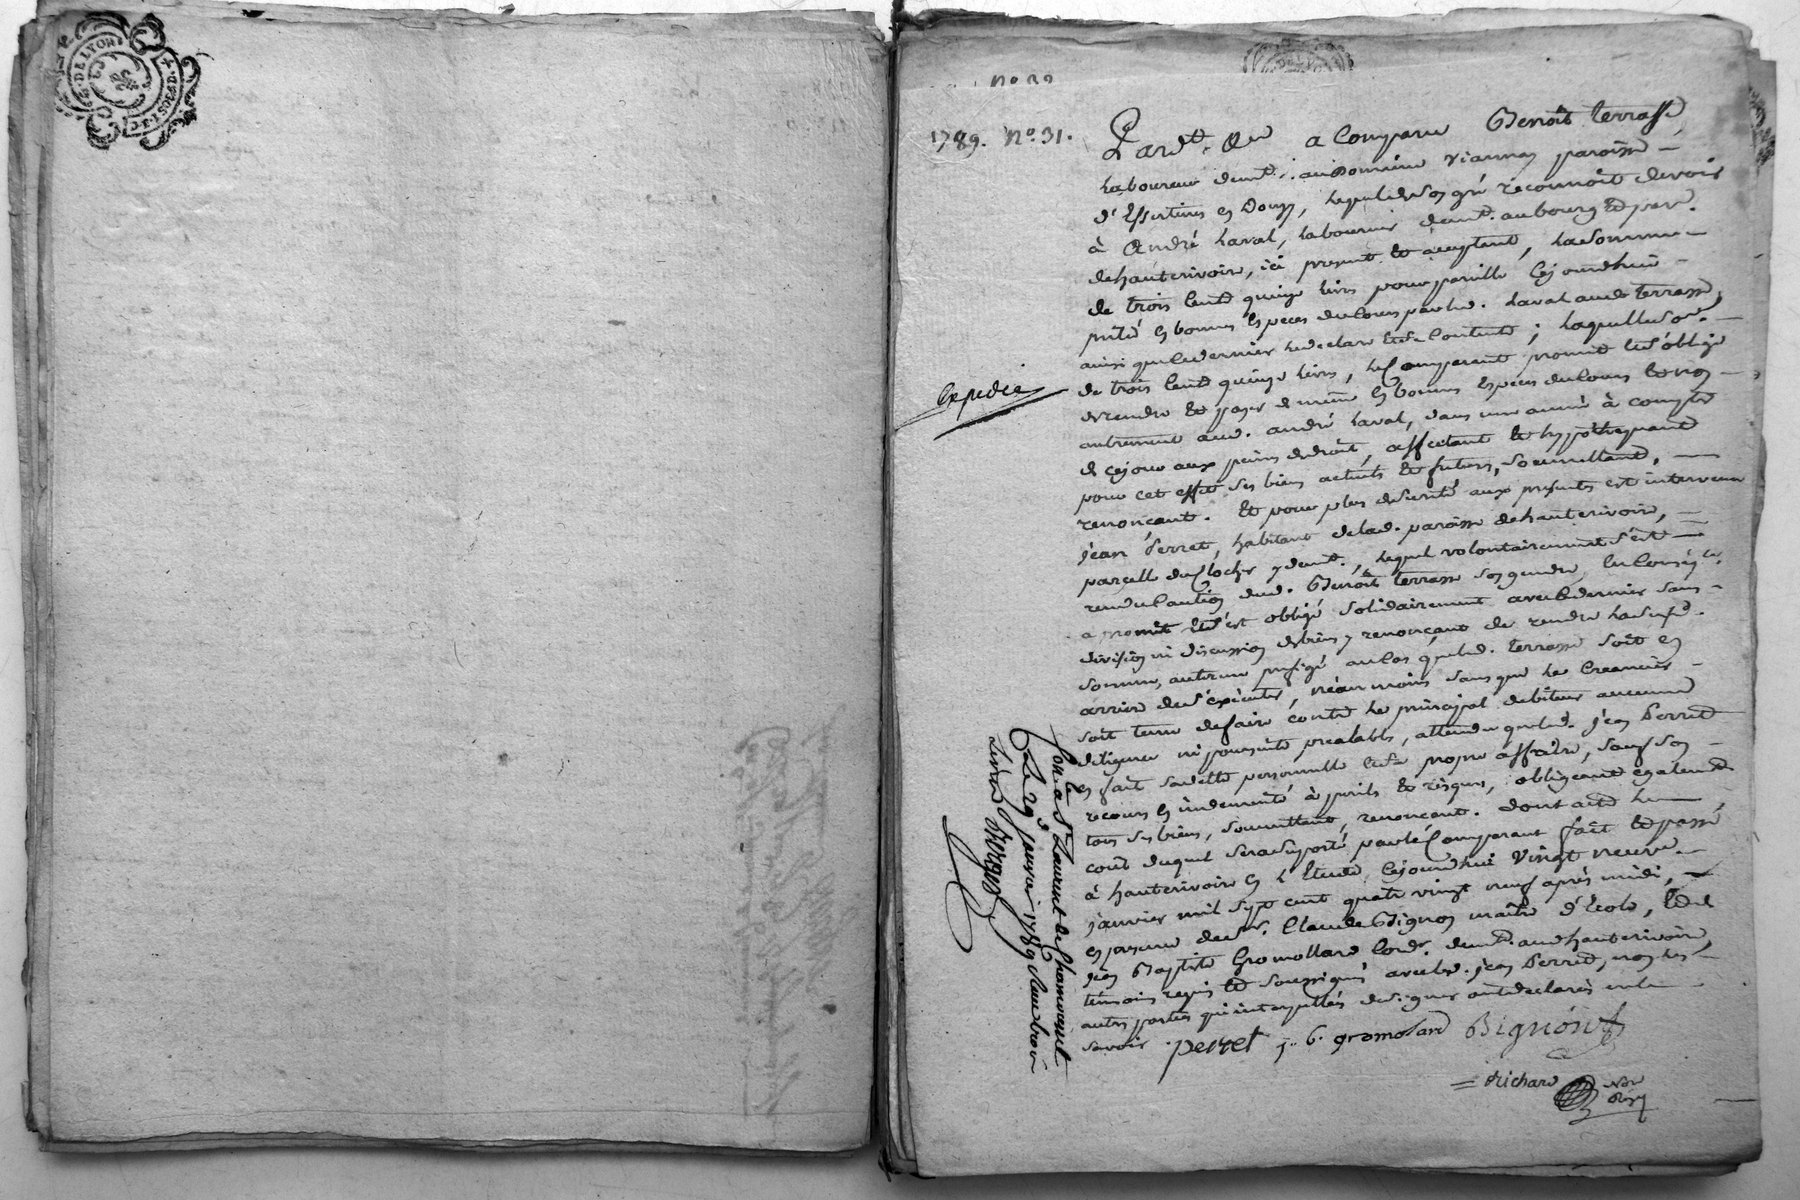 G. DE LYON
2.S. 3 D.
1789. N° 31.
Pardt. Nre a Comparu Benoît terrasse
Laboureur demt. au Domaine viannay paroisse
d'Essertines en Donzy, lequel de son gré reconnoit devoir
à André Laval, Laboureur demt. au bourg et parr.
de hauterivoire, ici present et acceptant, la somme
de trois Cents quinze livres pour pareille Cejourdhuy
prêté en bonnes especes du Cours par led. Laval aud. terrasse,
ainsi que ce dernier le declare et s'en Contente ; laquelle some
de trois Cents quinze livres, le Comparant promet et s'oblige
de rendre et payer de même en bonnes especes du Cours et non
autrement aud. andré Laval, dans une année à compter
de ce jour aux peines de droit, affectant et hypothequant
pour cet effet ses biens actuels et futurs, soumettant,
renonçant. Et pour plus de sureté aux presentes est intervenu
jean Perret, habitant de lad. paroisse de hauterivoire,
parcelle du Clocher y demt., lequel volontairement s'est
rendu Caution dud. Benoît terrasse son gendre, en Conséqce
a promit et s'est obligé solidairement avec ce dernier sans
division ni discussion de biens y renonçant de rendre la susd.
somme, au terme prefigé au Cas que led. terrasse soit en
arriere de s'exécuter, néanmoins sans que le Creancier
soit tenu de faire contre le principal debiteur aucunes
diligence ni poursuite prealable, attendu que led. jean Perret
en fait sa dette personnelle et sa propre affaire, sauf son
recours en indemnité à perils et risques, obligeant également
tous ses biens, soumettant, renonçant. dont acte le
coût duquel sera suporté par le Comparant fait et passé
à hauterivoire en l'Etude, Cejourdhui vingt neuf
janvier mil sept cent quatre vingt neuf après midi,
en presence de sr. Claude Bignon maître d'École, et de
jean Baptiste Gromollard Cordr. demt. aud. hauterivoire,
témoins requis et soussignés avec led. jean Perret, non les
autres parties qui interpellées de signer ont declaré ne le
savoir. perret j. b. gromolard Bignon
Richard Nre
Roy
Expedié
Con. le a St Laurent de Chamousset
Le 29 janvier 1789